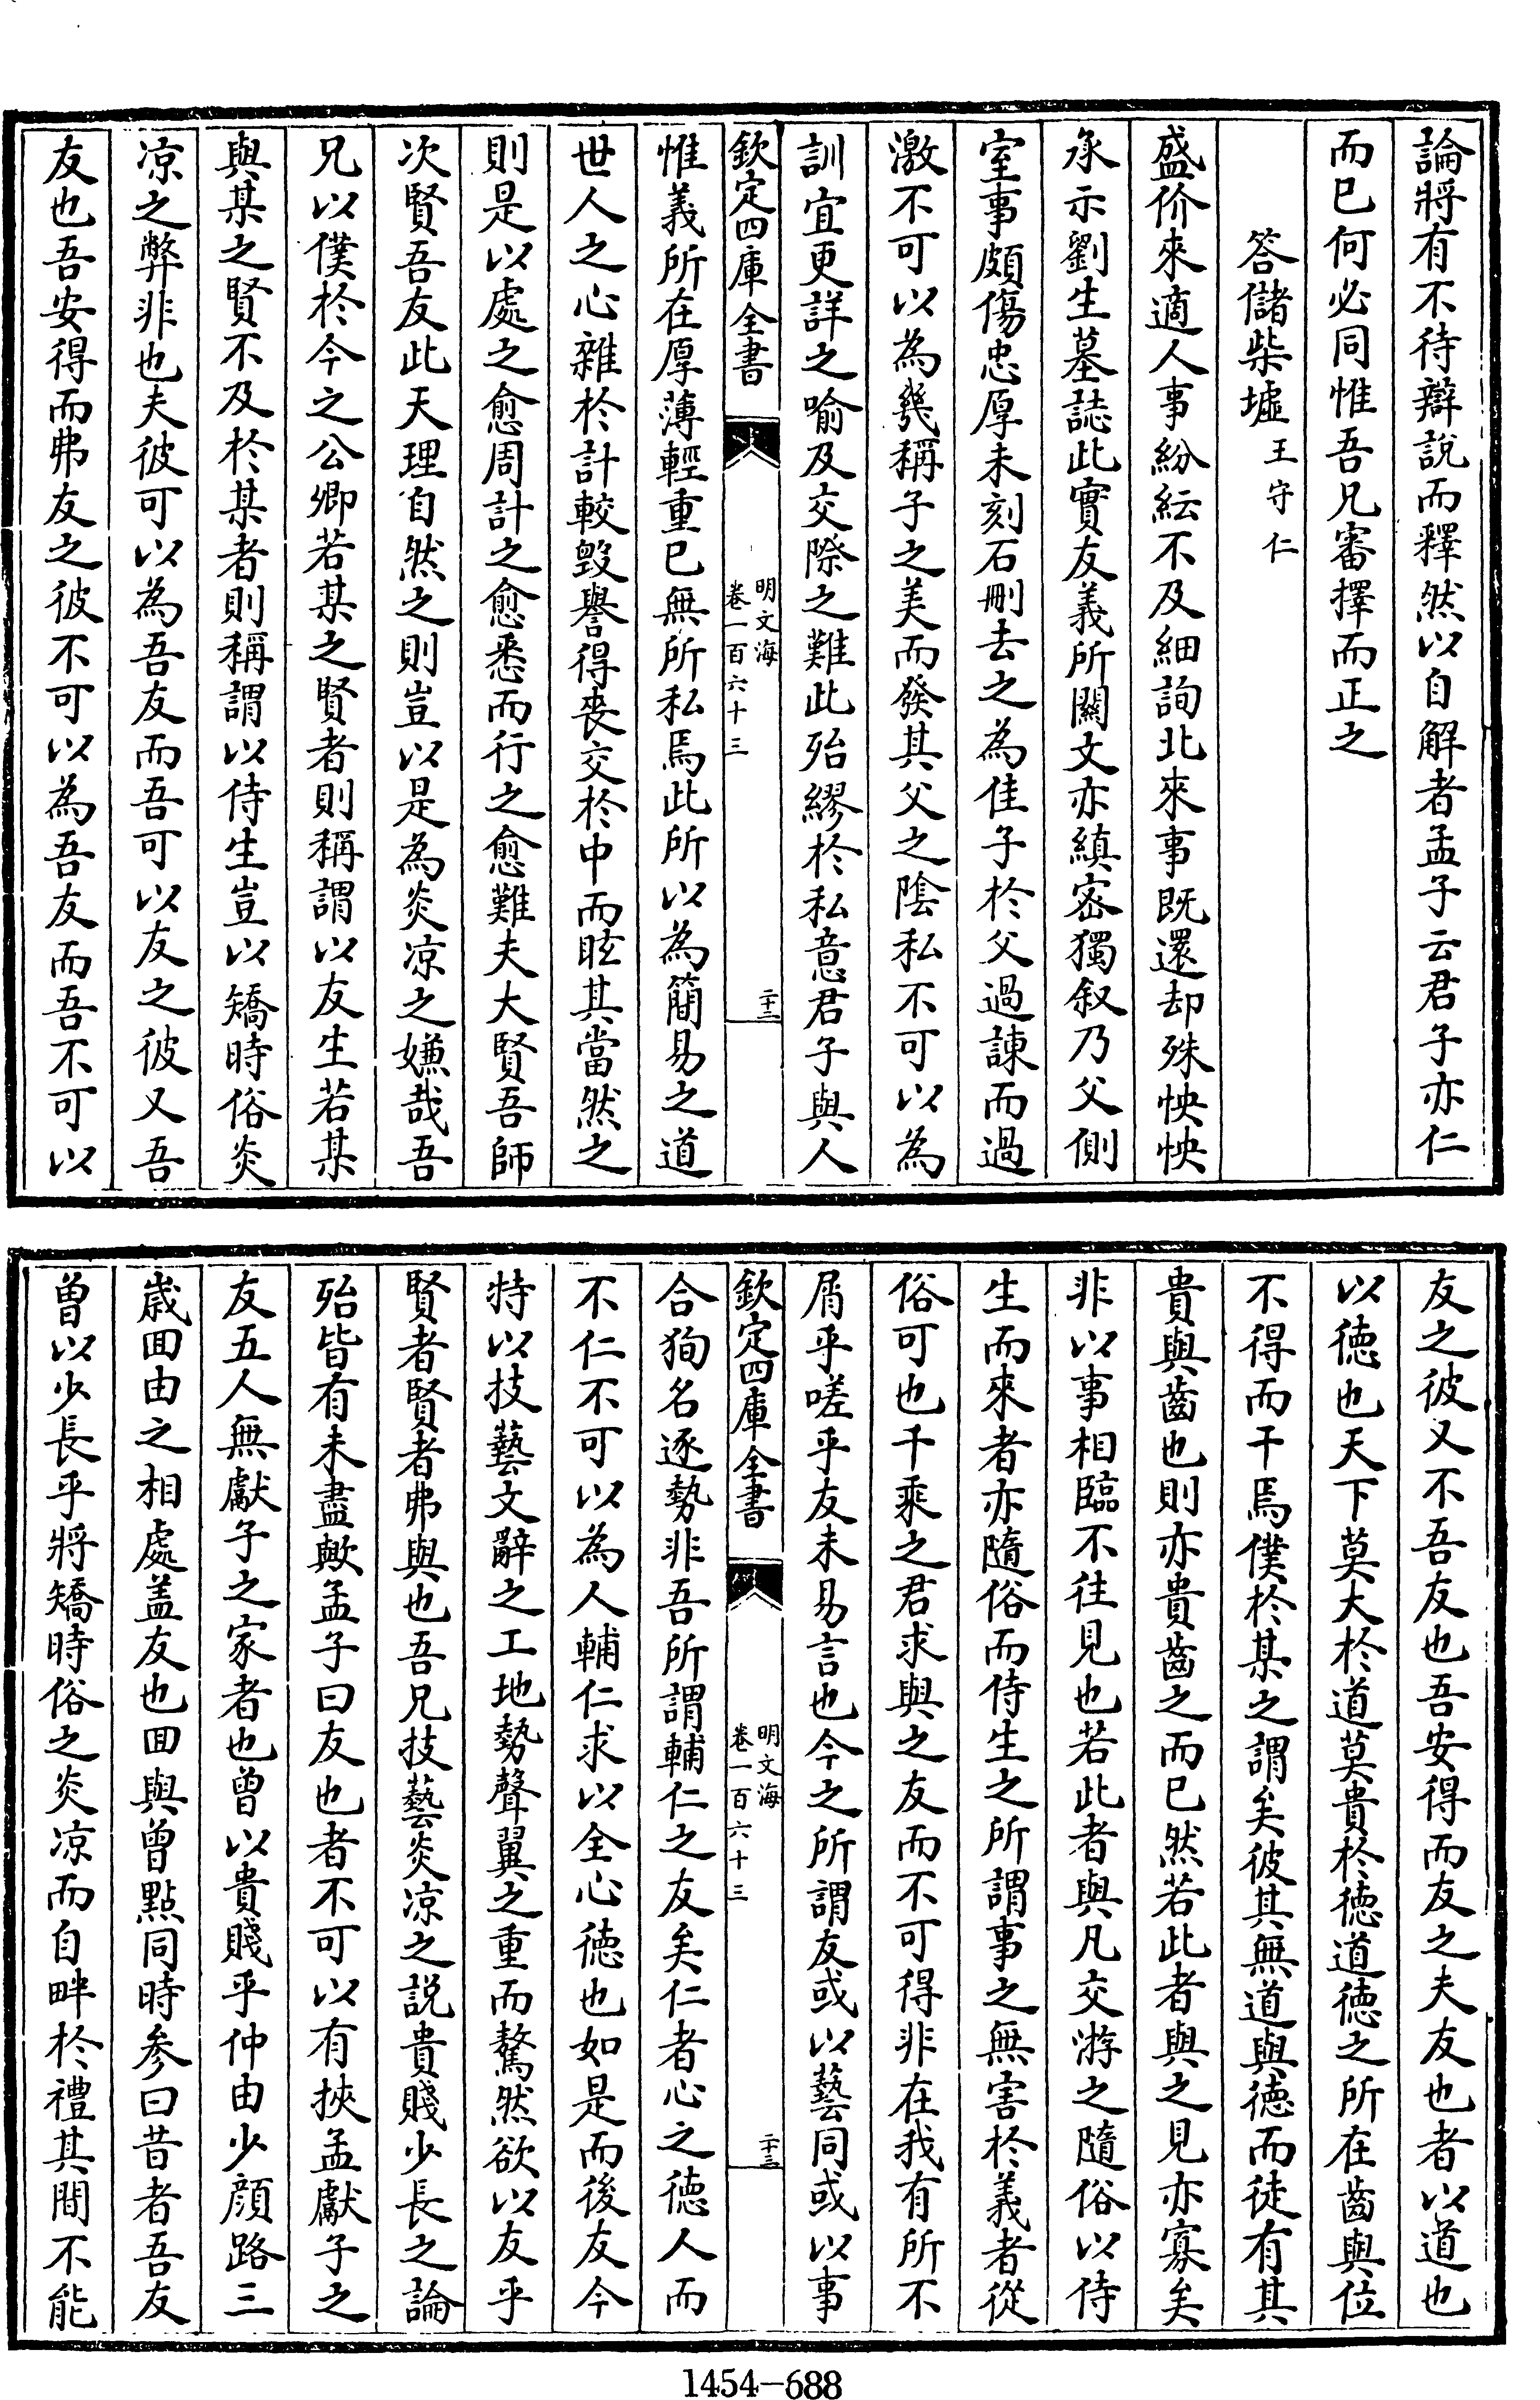 論將有不待辯說而釋然以自解者孟子云君子亦仁
而已何必同惟吾兄審擇而正之
答儲柴墟王守仁
盛价來適人事紛紜不及細詢北來事既還却殊怏怏
承示劉生墓誌此實友義所關文亦縝密獨叙乃父側
室事頗傷忠厚未刻石刪去之為佳子於父過諫而過
激不可以為幾稱子之美而發其父之陰私不可以為
訓宜更詳之喻及交際之難此殆繆於私意君子與人
欽定四庫全書
明文海
卷一百六十三
二十二
惟義所在厚薄輕重已無所私焉此所以為簡易之道
世人之心雜於計較毀譽得喪交於中而眩其當然之
則是以處之愈周計之愈悉而行之愈難夫大賢吾師
次賢吾友此天理自然之則豈以是為炎凉之嫌哉吾
兄以僕於今之公卿若某之賢者則稱謂以友生若某
與某之賢不及於某者則稱謂以侍生豈以矯時俗炎
凉之弊非也夫彼可以為吾友而吾可以友之彼又吾
友也吾安得而弗友之彼不可以為吾友而吾不可以
友之彼又不吾友也吾安得而友之夫友也者以道也
以徳也天下莫大於道莫貴於徳道徳之所在齒與位
不得而干焉僕於某之謂矣彼其無道與徳而徒有其
貴與齒也則亦貴齒之而已然若此者與之見亦寡矣
非以事相臨不往見也若此者與凡交游之隨俗以侍
生而來者亦隨俗而侍生之所謂事之無害於義者從
俗可也千乘之君求與之友而不可得非在我有所不
屑乎嗟乎友未易言也今之所謂友或以藝同或以事
欽定四庫全書
明文海
卷一百六十三
二十三
合狥名逐勢非吾所謂輔仁之友矣仁者心之徳人而
不仁不可以為人輔仁求以全心徳也如是而後友今
特以技藝文辭之工地勢聲翼之重而驁然欲以友乎
賢者賢者弗與也吾兄技藝炎凉之説貴賤少長之論
殆皆有未盡歟孟子曰友也者不可以有挾孟獻子之
友五人無獻子之家者也曾以貴賤乎仲由少顔路三
歲回由之相處盖友也回與曾點同時參曰昔者吾友
曽以少長乎將矯時俗之炎凉而自畔於禮其間不能
1454-688